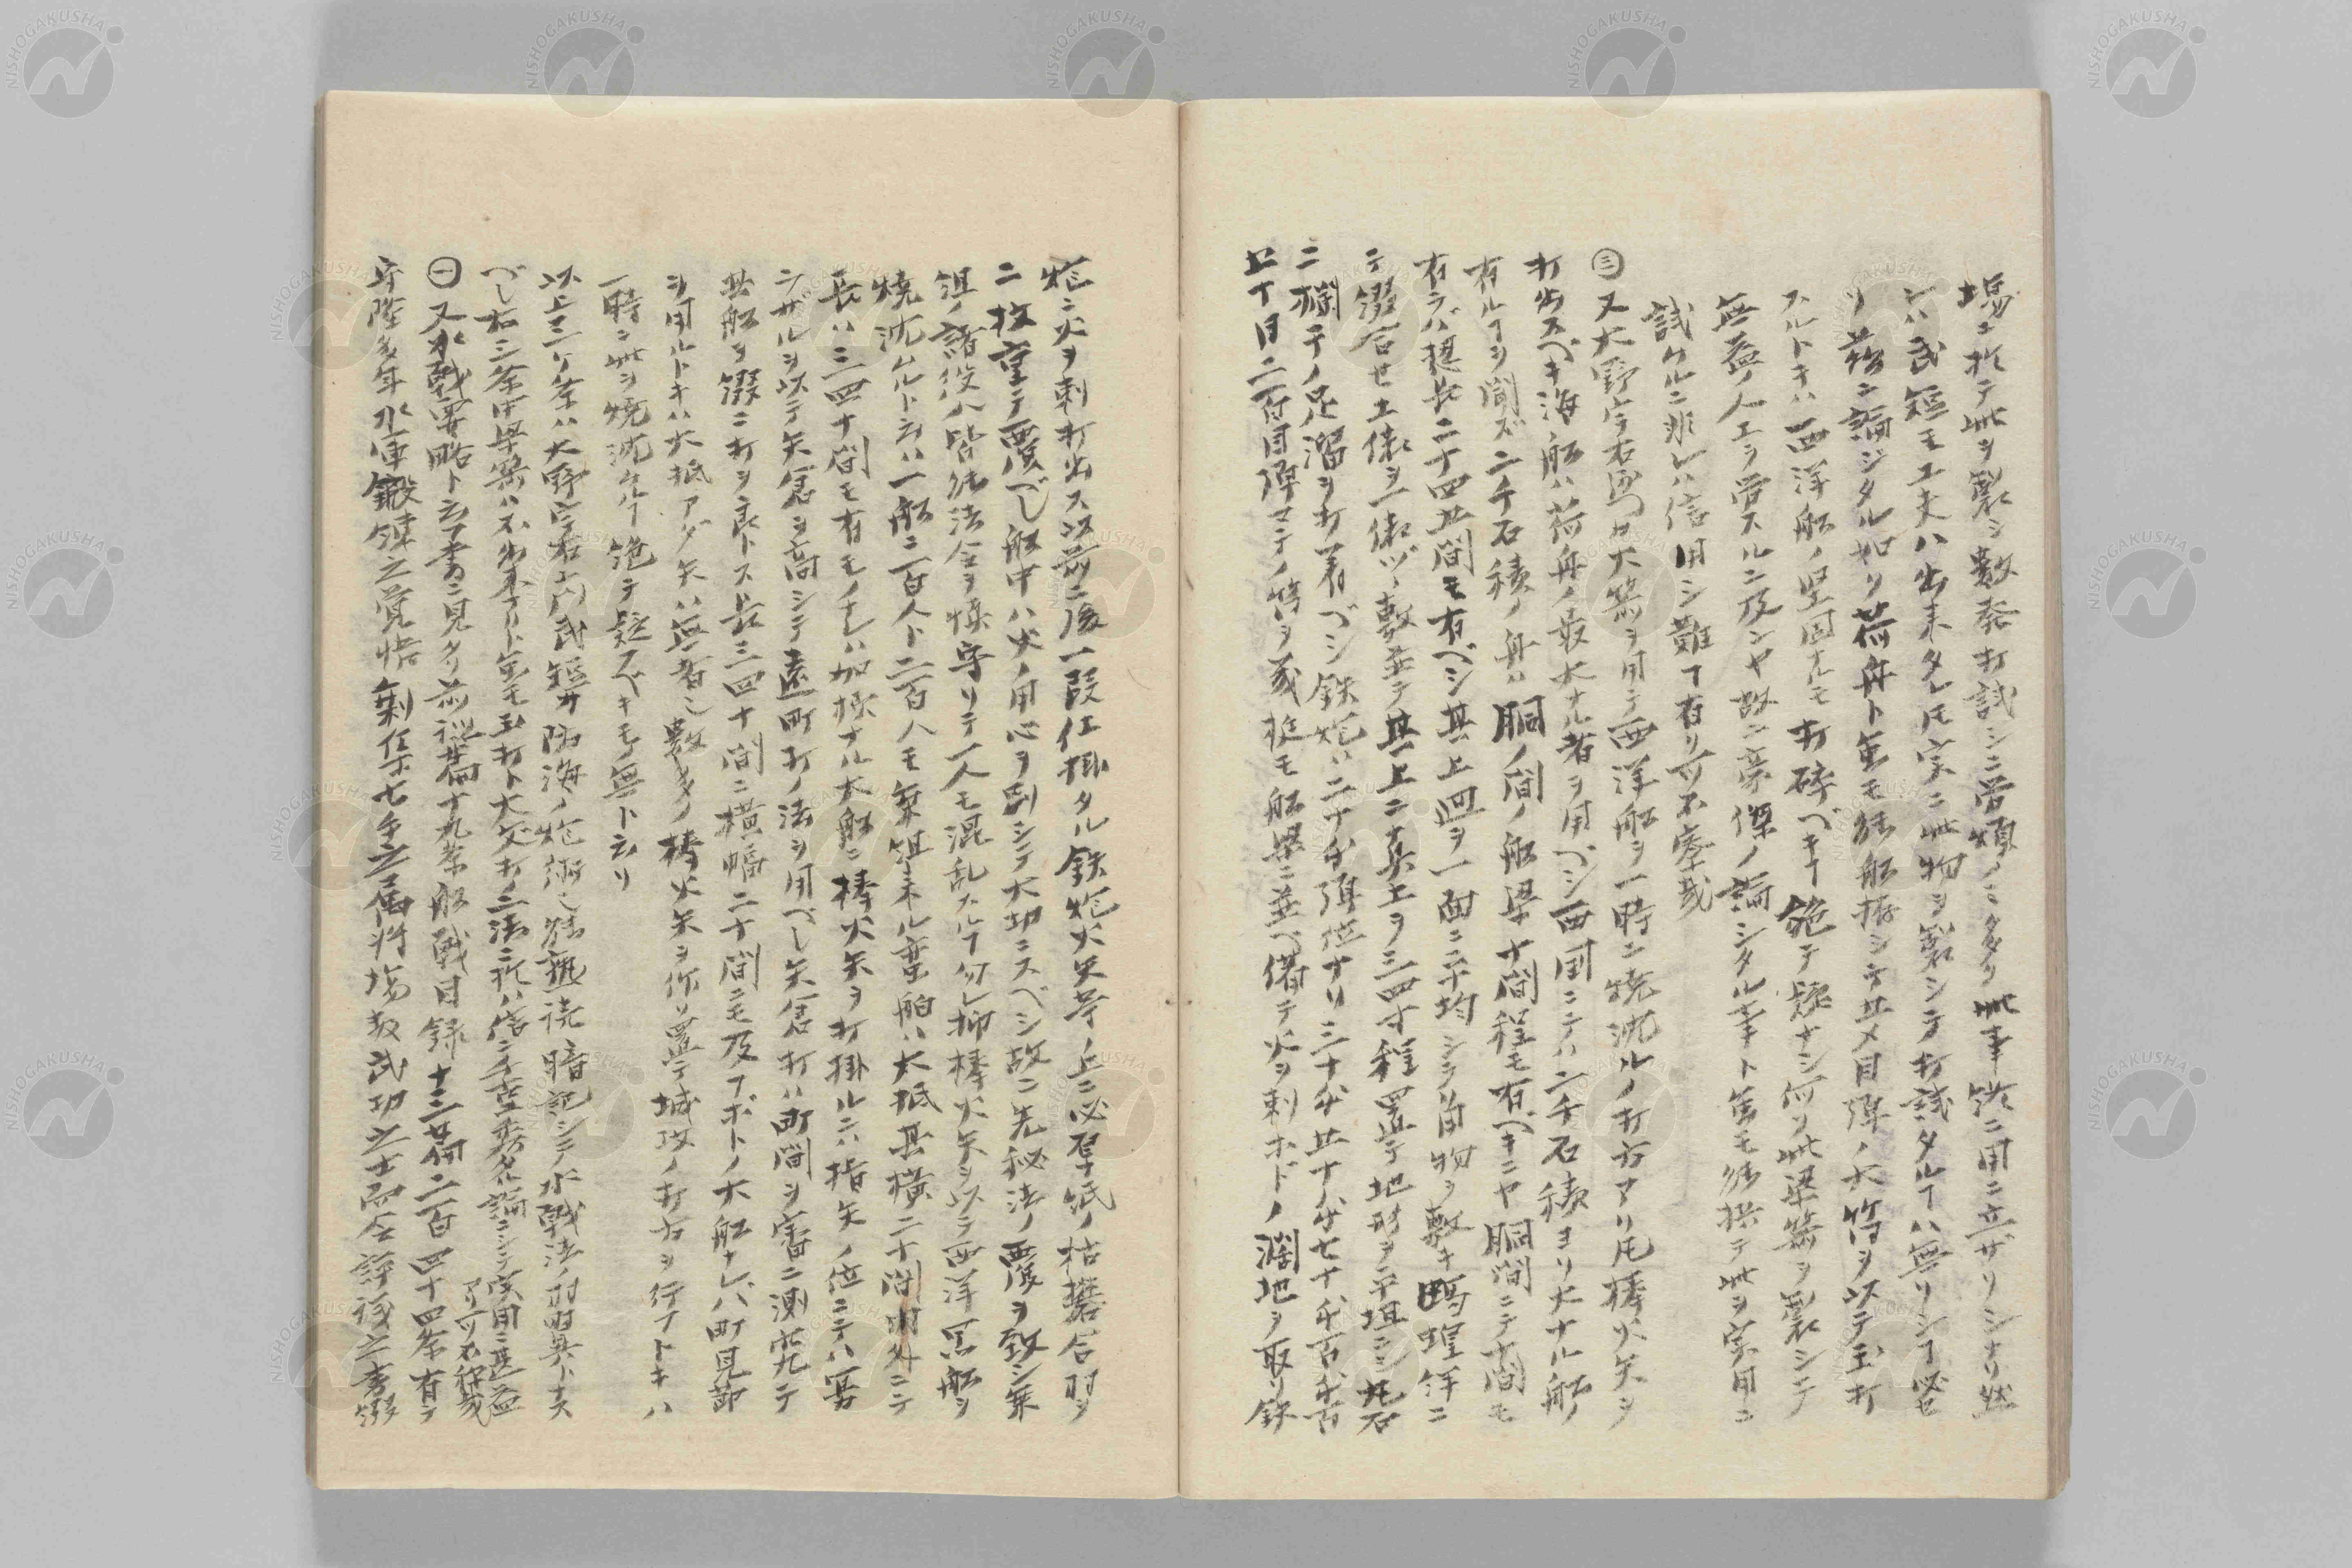 場ニ於テ此ヲ製シ數発打試シニ皆煩ノミ多ク此事終ニ用ニ立ザリシナリ然
レハ武短モ工夫ハ出来タレ𪜈実ニ此物ヲ製シテ打試タルヿハ無リシヿ必セ
リ前ニ論ジタル如ク荷舟ト虽モ能船拵シテ廿〆目弾ノ大筒ヲ以テ玉打
スルトキハ西洋船ノ堅固ナルモ打砕ベキヿ絶テ疑ナシ何ソ此梁箭ヲ製シテ
無益ノ人工ヲ労スルニ及ンヤ故ニ豪傑ノ論シタル事ト虽モ能拱テ此ヲ実用ニ
試タルニ非レハ信用シ難ヿ有リ可不察哉
㊂又大野宇右衛門カ大箭ヲ用テ西洋船ヲ一時ニ焼沈ルノ打方アリ𪜈棒火矢ヲ
打出スベキ海船ハ荷舟ノ最大ナル者ヲ用ベシ西国ニテハ二千石積ヨリ大ナル船
有ルヿヲ聞ズ二千石積ノ舟ハ胴ノ間ノ船梁十間程モ有ベキニヤ胴間ニテ十間モ
有ラバ揔長二十四五間モ有ベシ其上廻ヲ一面ニ平均シテ角物ヲ敷キ鴎蝗絆ニ
テ綴合セ土俵ヲ一俵ヅヽ敷並テ其上ニ真土ヲ三四寸程置テ地形ヲ平坦ニシ虎石
ニ欄干ノ足溜ヲ打着ベシ鉄炮ハ二十匁弾位ナリ三十匁五十匁七十匁百匁百
五十目二百目弾マテノ筒ヲ幾挺モ船梁ニ並ベ備テ火ヲ刺ホドノ濶地ヲ取リ鉄
炮ニ火ヲ刺打出ス以前ニ後一段仕掛タル鉄炮火矢等ノ上ニ必厚紙ノ枯礬合羽ヲ
二枚重テ覆ベし船中ハ火ノ用心ヲ別シテ大切ニスベシ故ニ先秘法ノ覆ヲ致シ乗
組ノ諸役ハ皆能法令ヲ慎守リテ一人モ混乱スルヿ勿レ扨棒火矢ヲ以テ西洋冦船ヲ
焼沈ムルト云ハ一船ニ一百人ト二百人モ乗組来ル蛮舶ハ大抵其横二十間内外ニテ
長ハ三四十間モ有モノナレハ加様ナル大船ニ棒火矢ヲ打掛ルニハ指矢ノ位ニテハ宜
ラザルヲ以テ矢倉ヲ高シテ遠町打ノ法ヲ用べし矢倉打ハ町間ヲ審ニ測究テ
其船ヲ綴ニ打ヲ良トス長三四十間ニ横幅二十間ニモ及フボトノ大船ナレバ町見節
ヲ用ルトキハ大抵アダ矢ハ無者也數多ノ棒火矢ヲ作リ置テ城攻ノ打方ヲ行フトキハ
一時ニ此ヲ焼沈ムルヿ絶テ疑フベキモノ無ト云リ
以上三ケ条ハ大野宇右エ門武短カ防海ノ炮術也能熟読暗記シテ水戦法ノ羽翼トナス
べし右三条中梁箭ハ不出来ナリト虽モ玉打ト大矢打ノ二法ニ於ハ信ニ千古豪秀ノ名論ニシテ実用ニ甚益
アリ可不秘哉
㊀又水戦要略ト云フ書ニ見タリ前後篇十九巻船戦目録十三篇二百四十四条有テ
守隆多年水軍鍛錬之覚悟剰伍七手之属将場数武功之士而仝評議之書綴